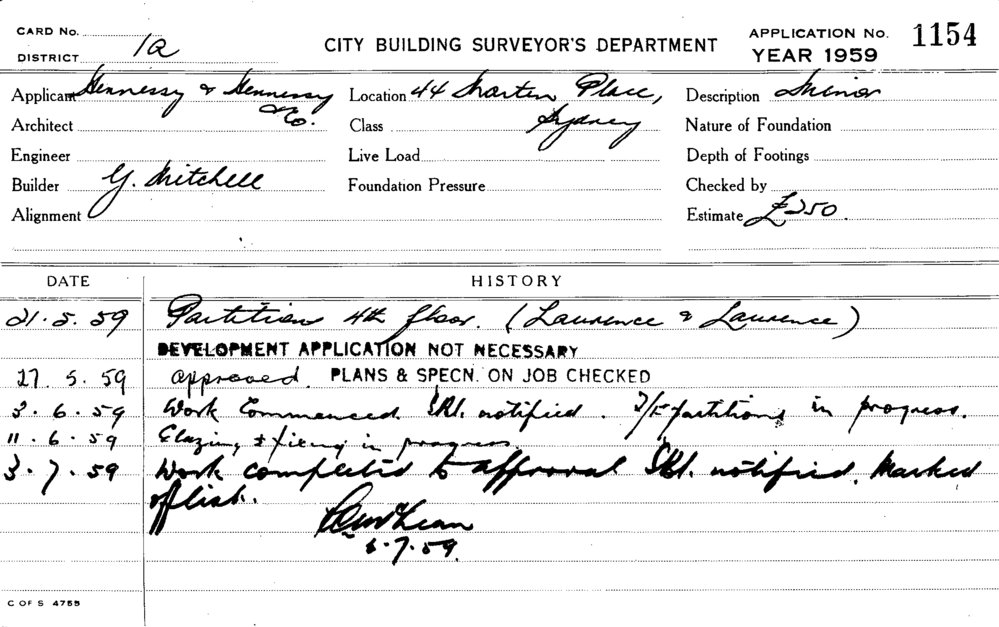 CARD No.
DISTRICT 1a
CITY BUILDING SURVEYOR'S DEPARTMENT
APPLICATION No. 1154
YEAR 1959
Applicant Hennessy & Hennessy & Co.
Location 44 Martin Place, Sydney
Description Minor
Architect
Class
Nature of Foundation
Engineer
Live Load
Depth of Footings
Builder G. Mitchell
Foundation Pressure
Checked by
Alignment
Estimate £250.
DATE HISTORY
21.5.59 Partitions 4th floor. (Laurence & Laurence)
DEVELOPMENT APPLICATION NOT NECESSARY
27.5.59 approved. PLANS & SPECN. ON JOB CHECKED
3.6.59 Work Commenced. notified. T/F partitions in progress.
11.6.59 Glazing & fixing in progress.
3.7.59 Work completed to approval notified. Marked
off list.
6.7.59.
C OF S 4759